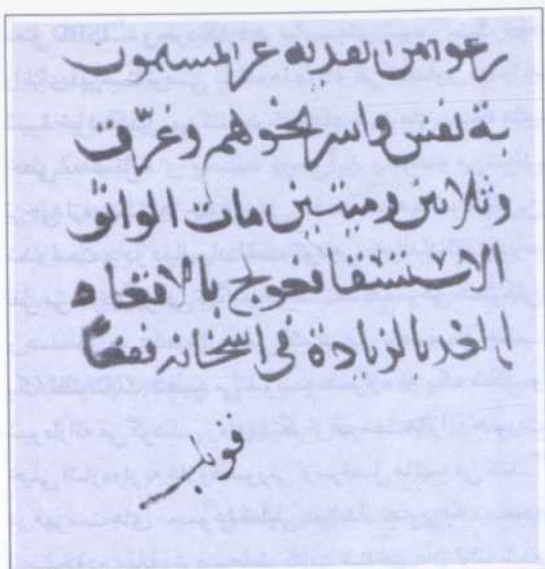 رعوا من الفدية عزا المسلمون
ية نفس واسر نحوهم وغرق
وثلاثين وميتين مات الواثق
الاستسقا فعولج بالاقعاد
الغد بالزيادة فى اسخانه ففعل
قوبل